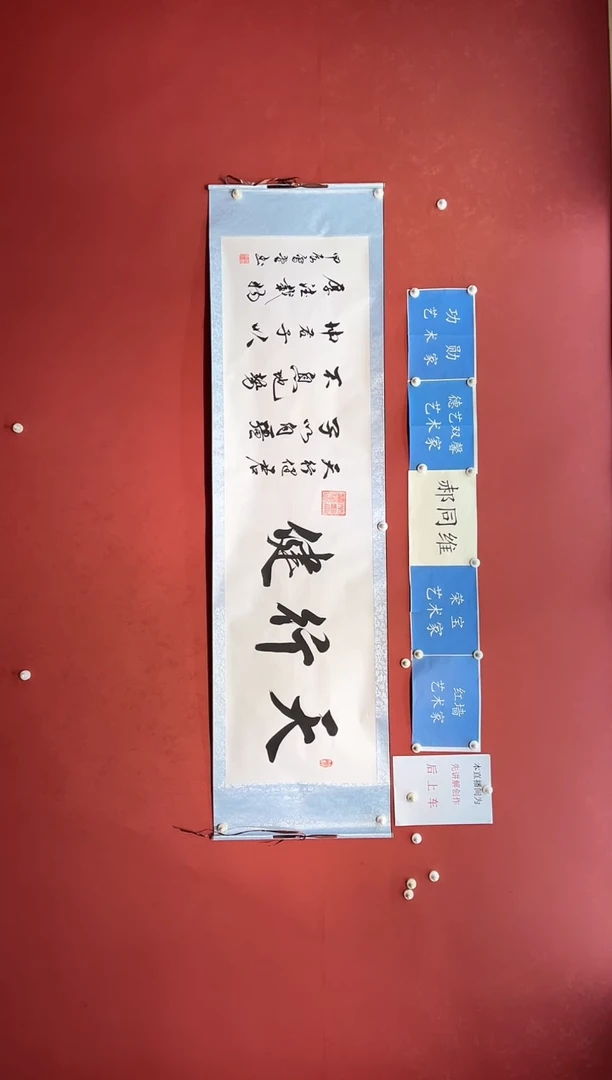 功勋
艺术家
德艺双馨
艺术家
郝同维
荣宝
艺术家
红墙
艺术家
本直播间为
先讲解创作
后上车
天行健
天行健君
子以自彊
不息地勢
坤君子以
厚德載物